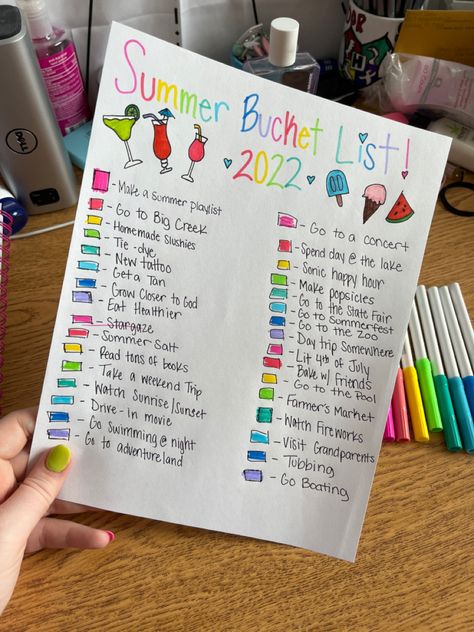 DELL
Summer Bucket List!
2022
- Make a summer playlist
- Go to Big Creek
- Homemade Slushies
- Tie-dye
- New tattoo
- Get a Tan
- Grow Closer to God
- Eat Healthier
- Stargaze
- Summer Salt
- Read tons of books
- Take a weekend Trip
- Watch Sunrise/Sunset
- Drive-in movie
- Go Swimming @ night
- Go to adventureland
- Go to a concert
- Spend day @ the lake
- Sonic happy hour
- Make popsicles
- Go to the State Fair
- Go to Summerfest
- Go to the Zoo
- Day trip Somewhere
- Lit 4th of July
- Bake w/ Friends
- Go to the Pool
- Farmer's Market
- Watch Fireworks
- Visit Grandparents
- Tubbing
- Go Boating